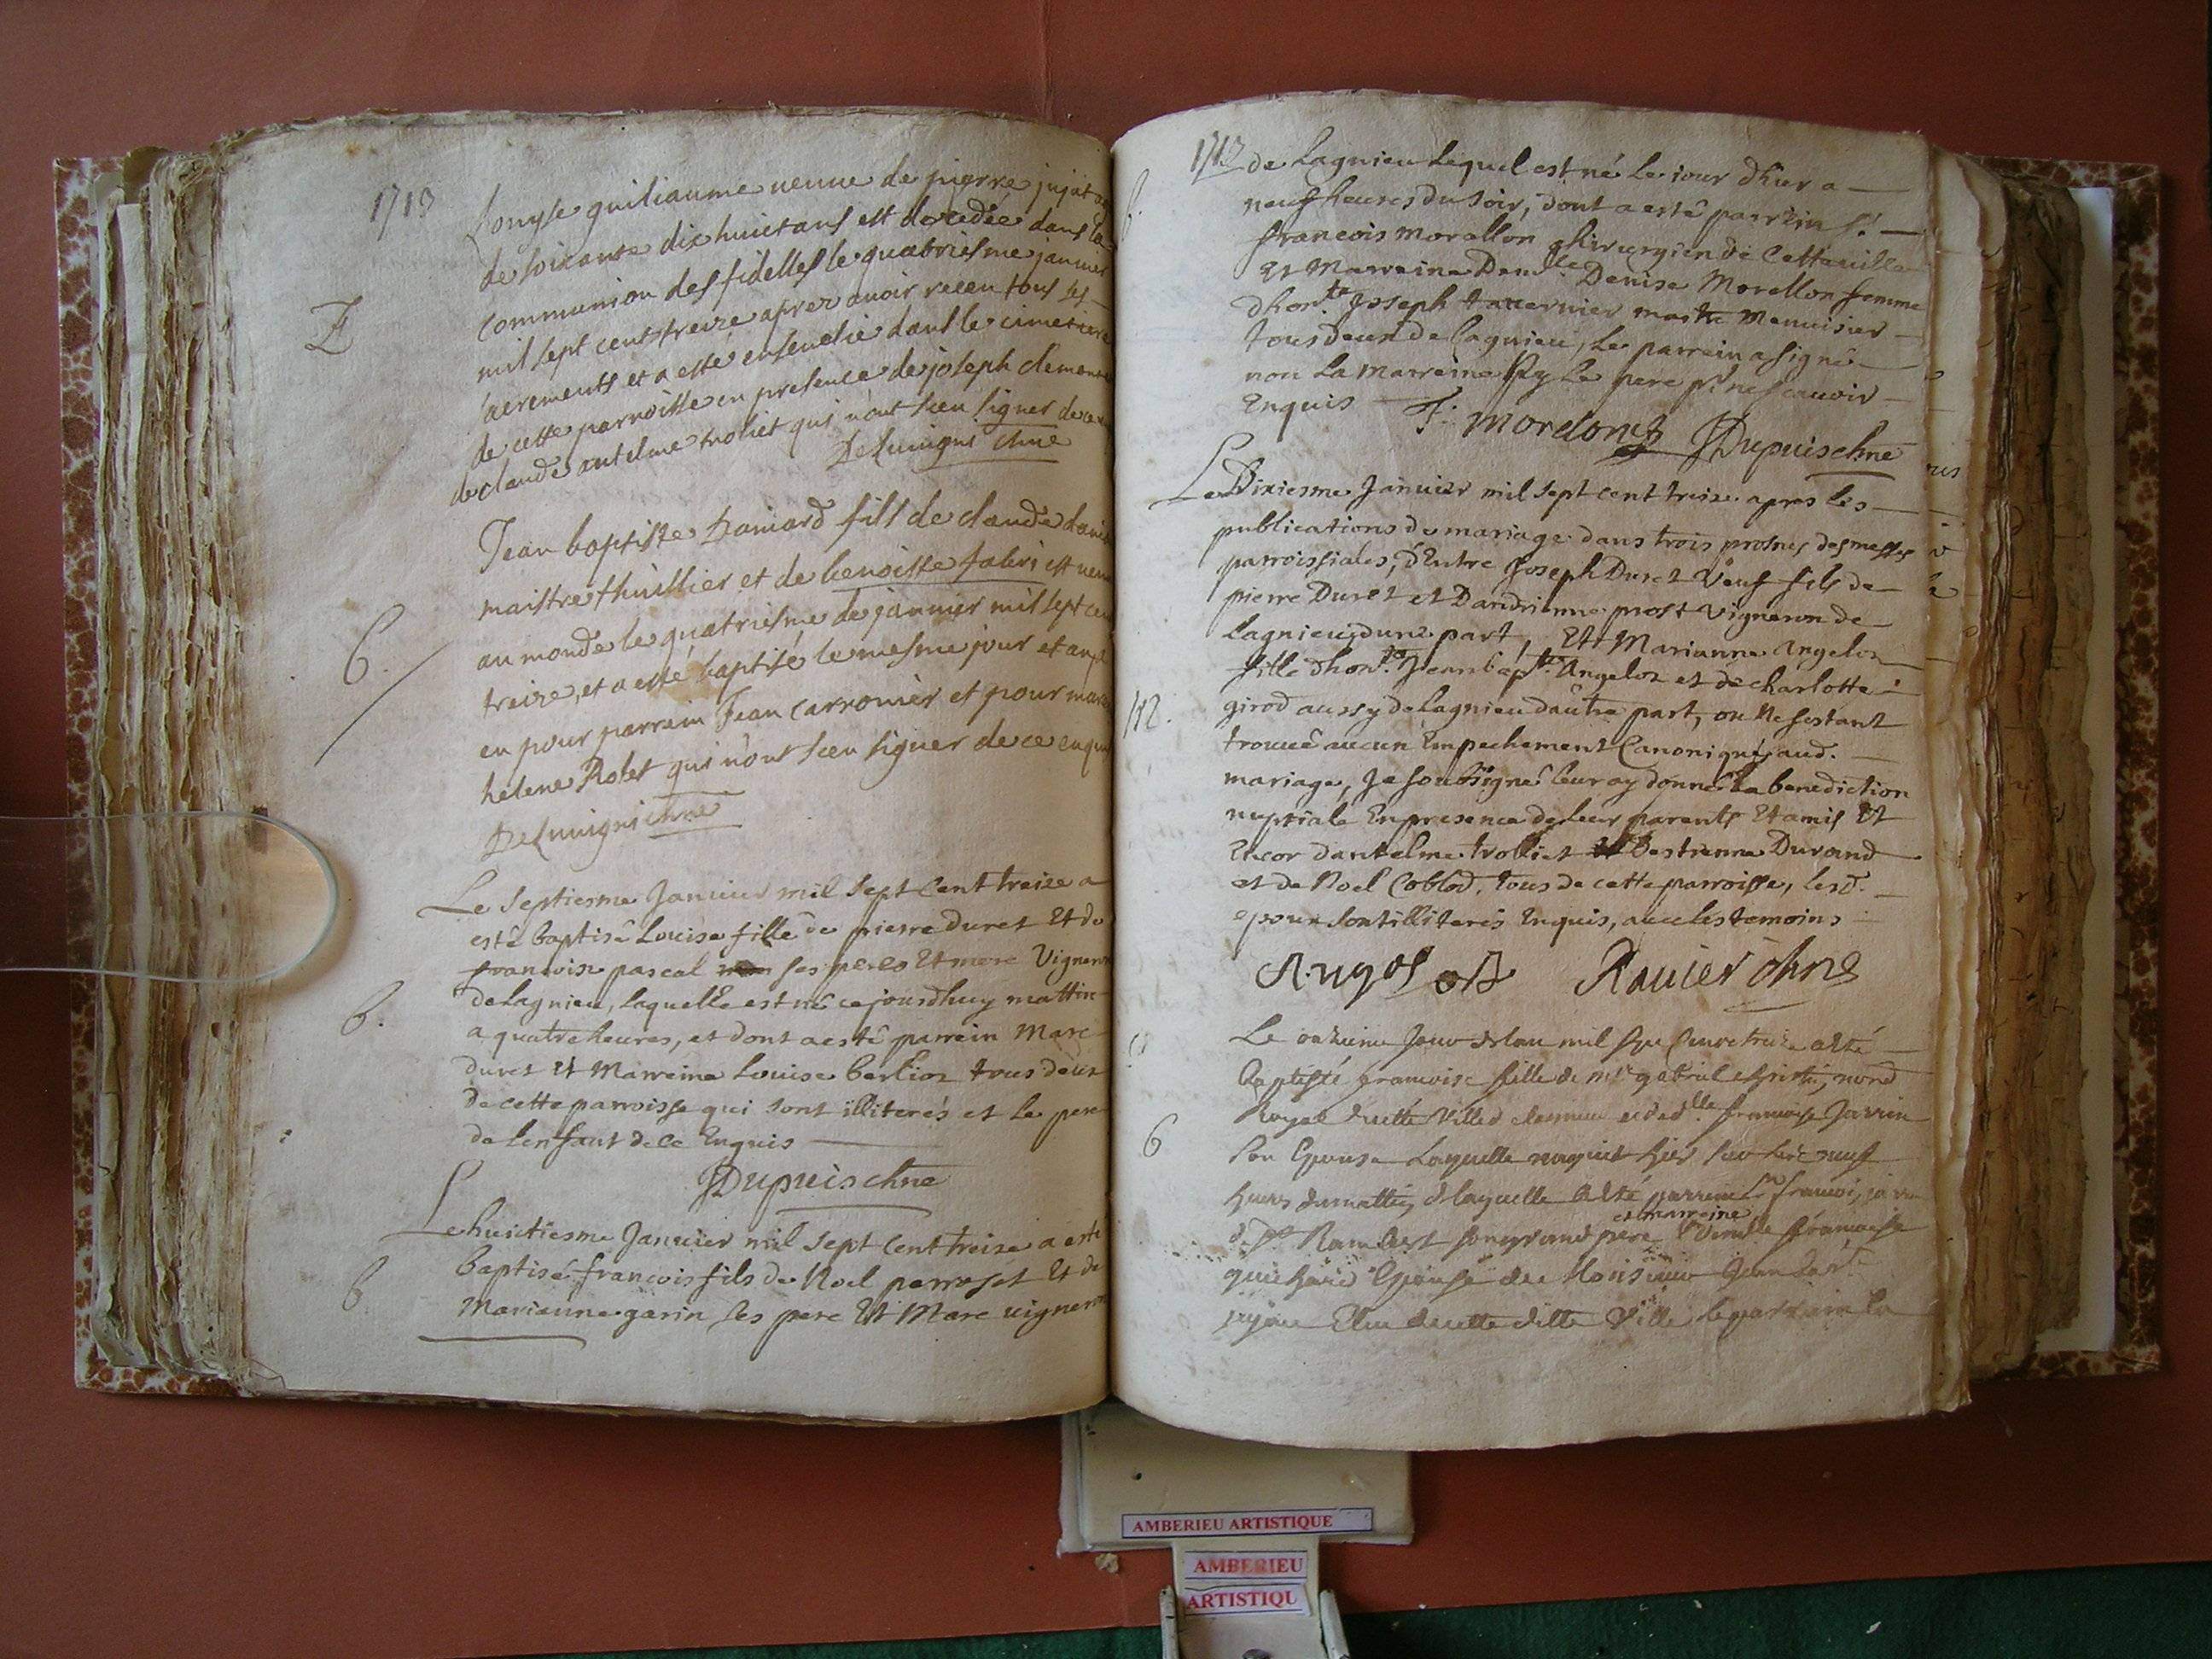 1713
Louyse guiliaume veuve de pierre jujat
de soixante dix huict ans est decedée dans la
communion des fidelles le quatriesme janvier
E
mil sept cent treize aprez avoir receu tous ses
sacrements et a esté ensevelie dans le cimetiere
de cette parroisse en presence de joseph clement
de claude antelme troliet qui n'ont sceu signer de ce
Delunigni chne
Jean baptiste Daniard fils de claude
maistre thuillier et de benoiste fabri est venu
au monde le quatriesme de janvier mil sept cent
B.
treize, et a esté baptisé le mesme jour et a
eu pour parrain Jean carronier et pour
helene Rolet qui n'ont sceu signer de ce enquis
Delunigni chne
Le septiesme Janvier mil sept Cent treize a
esté baptisé Louise fille de pierre duret Et de
francoise pascal ses peres Et mere Vigneron
de Lagnieu, laquelle est né ce jourdhuy mattin
B.
a quatre heures, et dont a esté parrein Marc
duret Et Marreine Louise berlioz tous deux
de cette parroisse qui sont illiterés et le pere
de lenfant de ce Enquis
JDupuis chne
Le huictiesme Janvier mil sept Cent treize a esté
baptisé francois fils de Noel perroset Et de
B
Marianne garin ses pere Et Mere vigneron
1713
de Lagnieu Lequel est né Le iour dhier a
neuf heures du soir, dont a esté parrein S.
B.
francois morellon chirurgien de Cette ville
Et Marreine Dem.lle Denise Morellon femme
dhon.te Joseph tavernier maitre Menuisier
tous deux de Lagnieu, Le parrein a signé
non La marreine Ny Le pere p.r ne scavoir
Enquis
F. Morelon JDupuis chne
Le Dixiesme Janvier mil sept cent treize apres les
publications de mariage dans trois prosnes des messes
parroissiales, d'Entre Joseph Duret Veuf fils de
pierre Duret et Dandrienne prost Vigneron de
Lagnieu, dune part, Et Marianne Angeloz
fille dhon.te Jean bap.te Angeloz et de charlotte
M.
girod aussy de Lagnieu dautre part, ou Ne sestant
trouvé aucun Empechement Canonique aud.
mariage, Je soubsigné leur ay donné la benediction
nuptiale En presence de leur parents Et amis Et
Encor dantelme trolliet destienne Durand
et de Noel Coblod, tous de cette parroisse, lesd.
epoux sont illiterés Enquis, avec les temoins
Ravier chne
Le onzieme Jour de lan mil sept cent treize a esté
Baptisée francoise fille de m.re gabriel
Royal de cette ville et de d.lle francoise Jarrin
B
son Epouse Laquelle naquit hier
heures du mattin, de laquelle a esté parrein S.r francois
Rambert son grand pere et marreine Dem.lle francoise
Epouse de Monsieur
Elu de cette ditte Ville le parrain
AMBERIEU ARTISTIQUE
AMBERIEU
ARTISTIQU